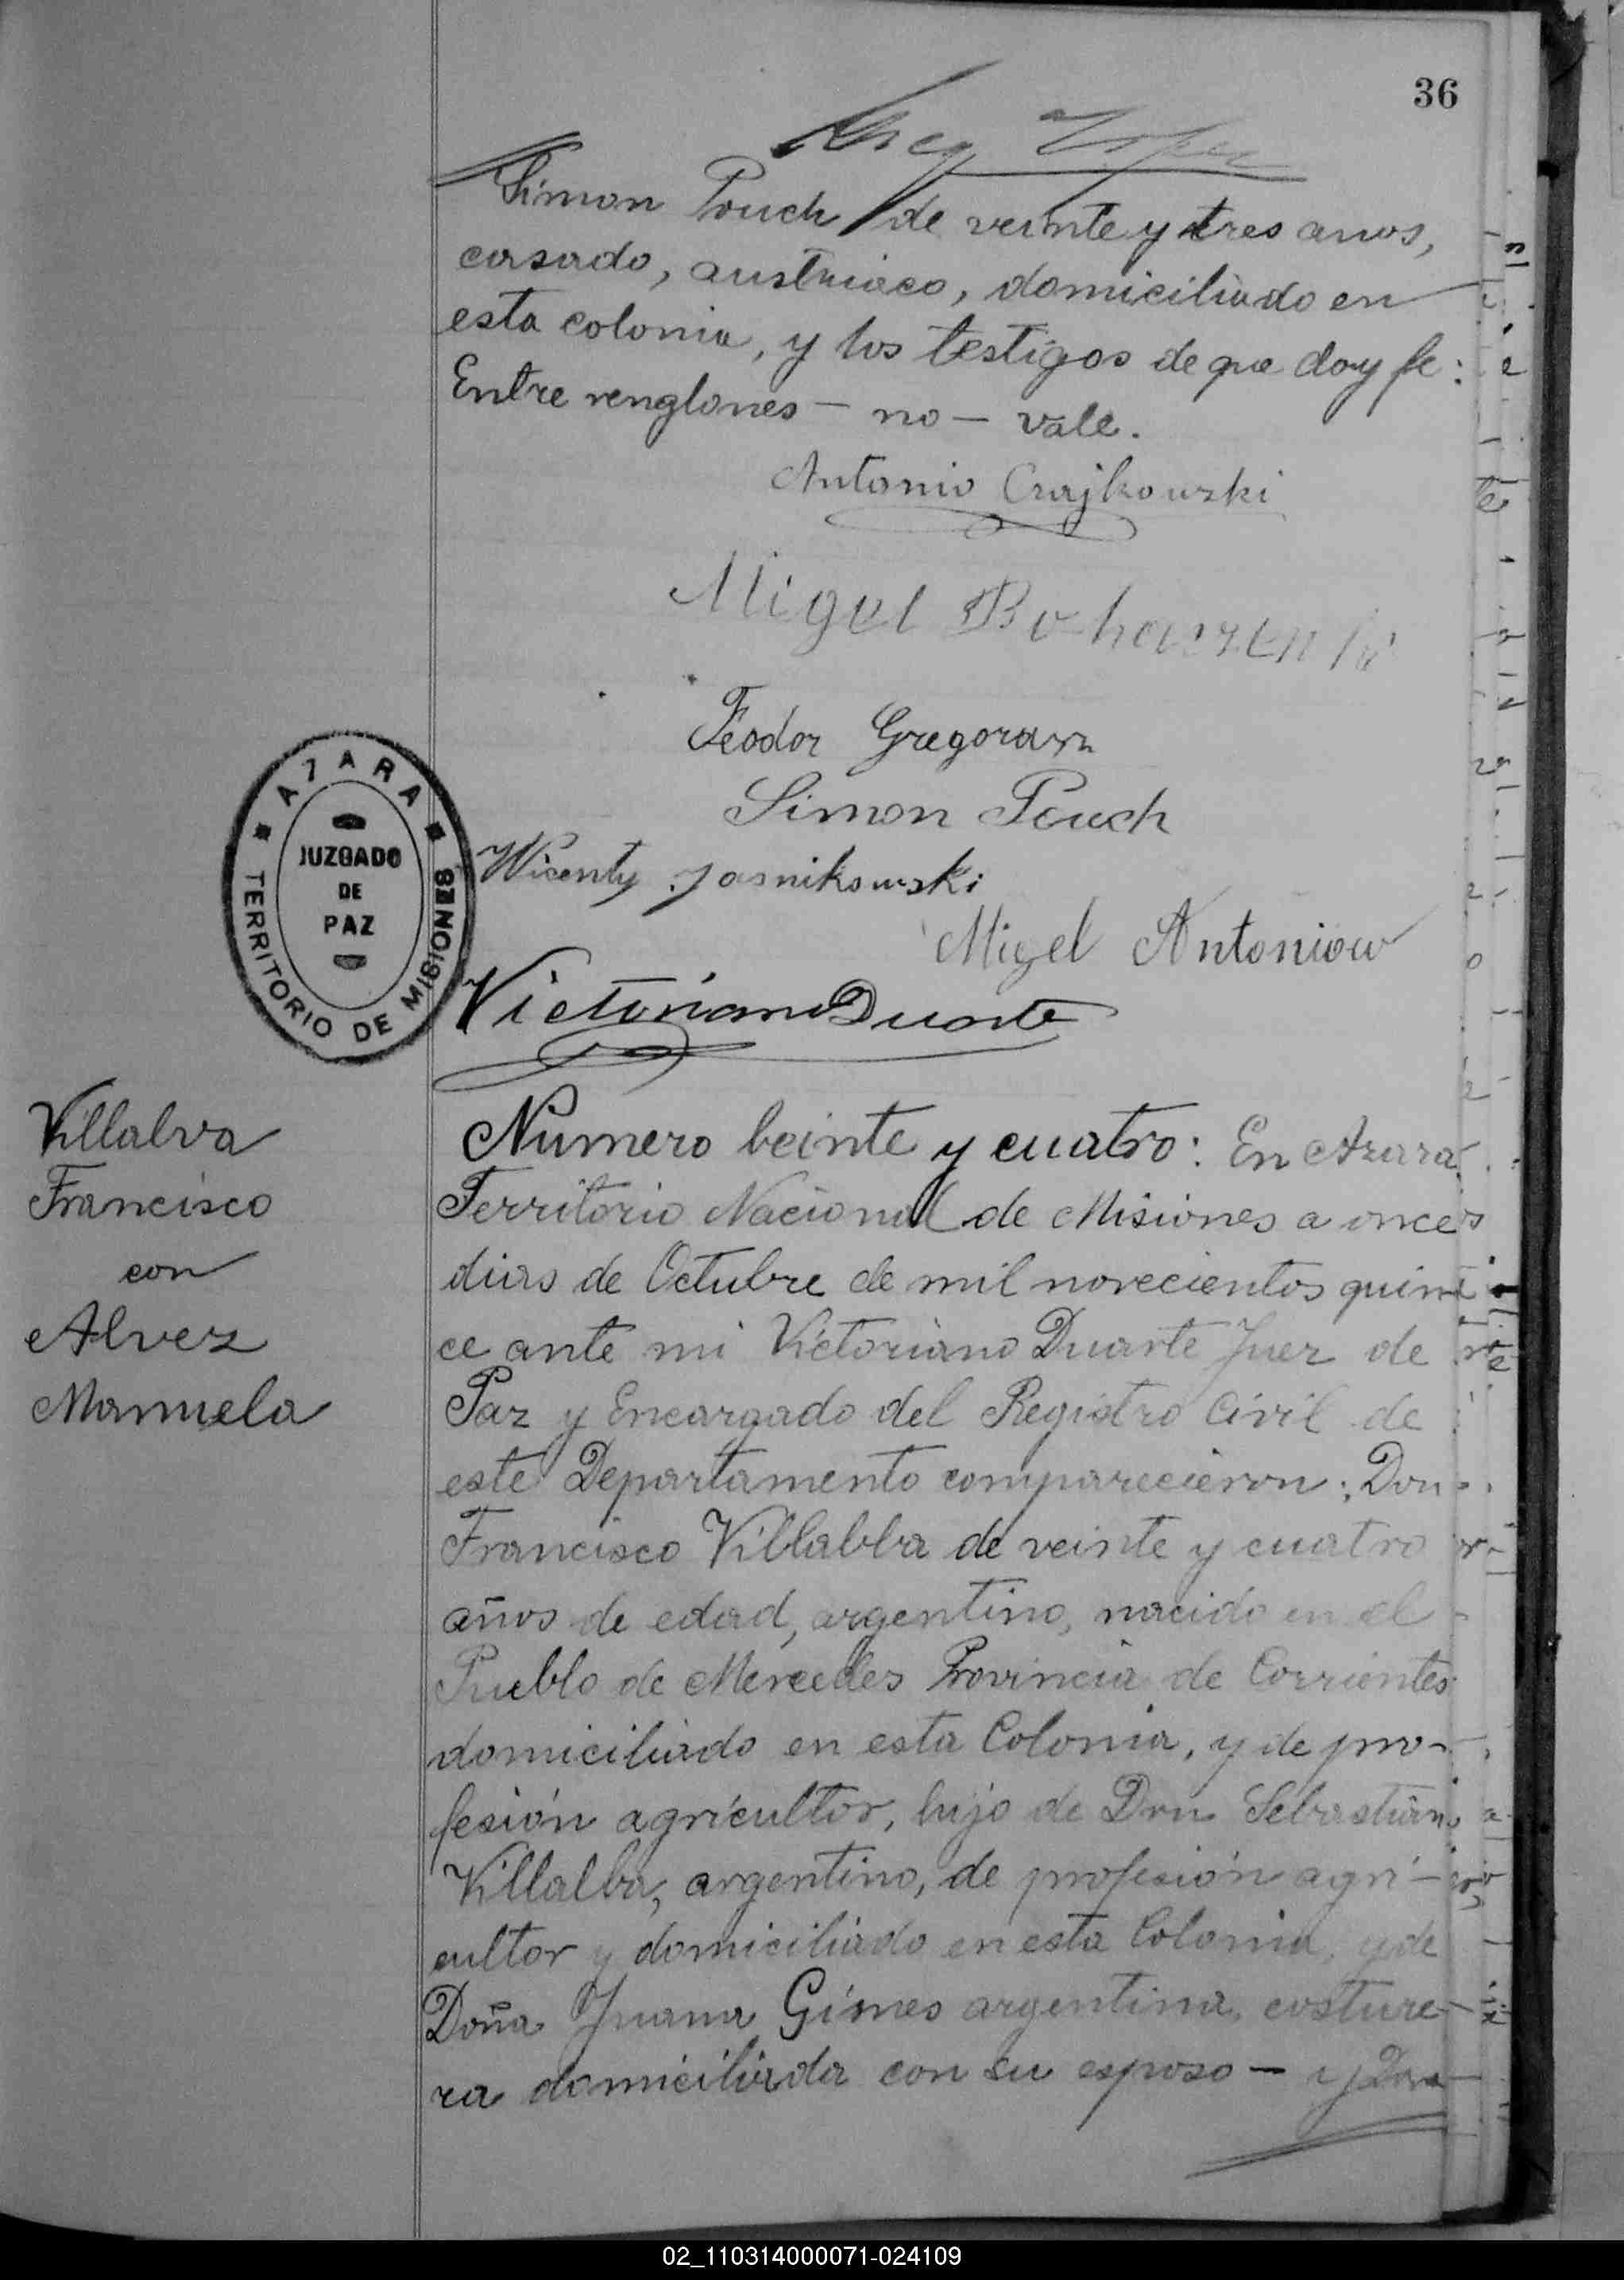 36
Simon Pouch de veinte y tres anos,
casado, austriaco, domiciliado en
esta colonia, y los testigos de que doy fe:
Entre renglones — no — vale.
Antonio Czajkowski
Migel
Feodor
Simon Pouch
Wicenty Jasnikowski
Migel Antoniow
Victoriano Duarte
AZARA
JUZGADO
DE
PAZ
TERRITORIO DE MISIONES
Villalva
Francisco
con
Alvez
Manuela
Numero beinte y cuatro: En Azara
Territorio Nacional de Misiones a onces
dias de Octubre de mil novecientos quin
ce ante mi Victoriano Duarte Juez de
Paz y Encargado del Registro Civil de
este Departamento comparecieron: Don
Francisco Villalba de veinte y cuatro
años de edad, argentino, nacido en el
Pueblo de Mercedes Provincia de Corrientes
domiciliado en esta Colonia, y de pro-
fesión agricultor, hijo de Don Sebastian
Villalba, argentino, de profesión agri-
cultor y domiciliado en esta Colonia, y de
Doña Juana Gimes argentina, costure-
ra domiciliada con su esposo — y Doña
02_110314000071-024109